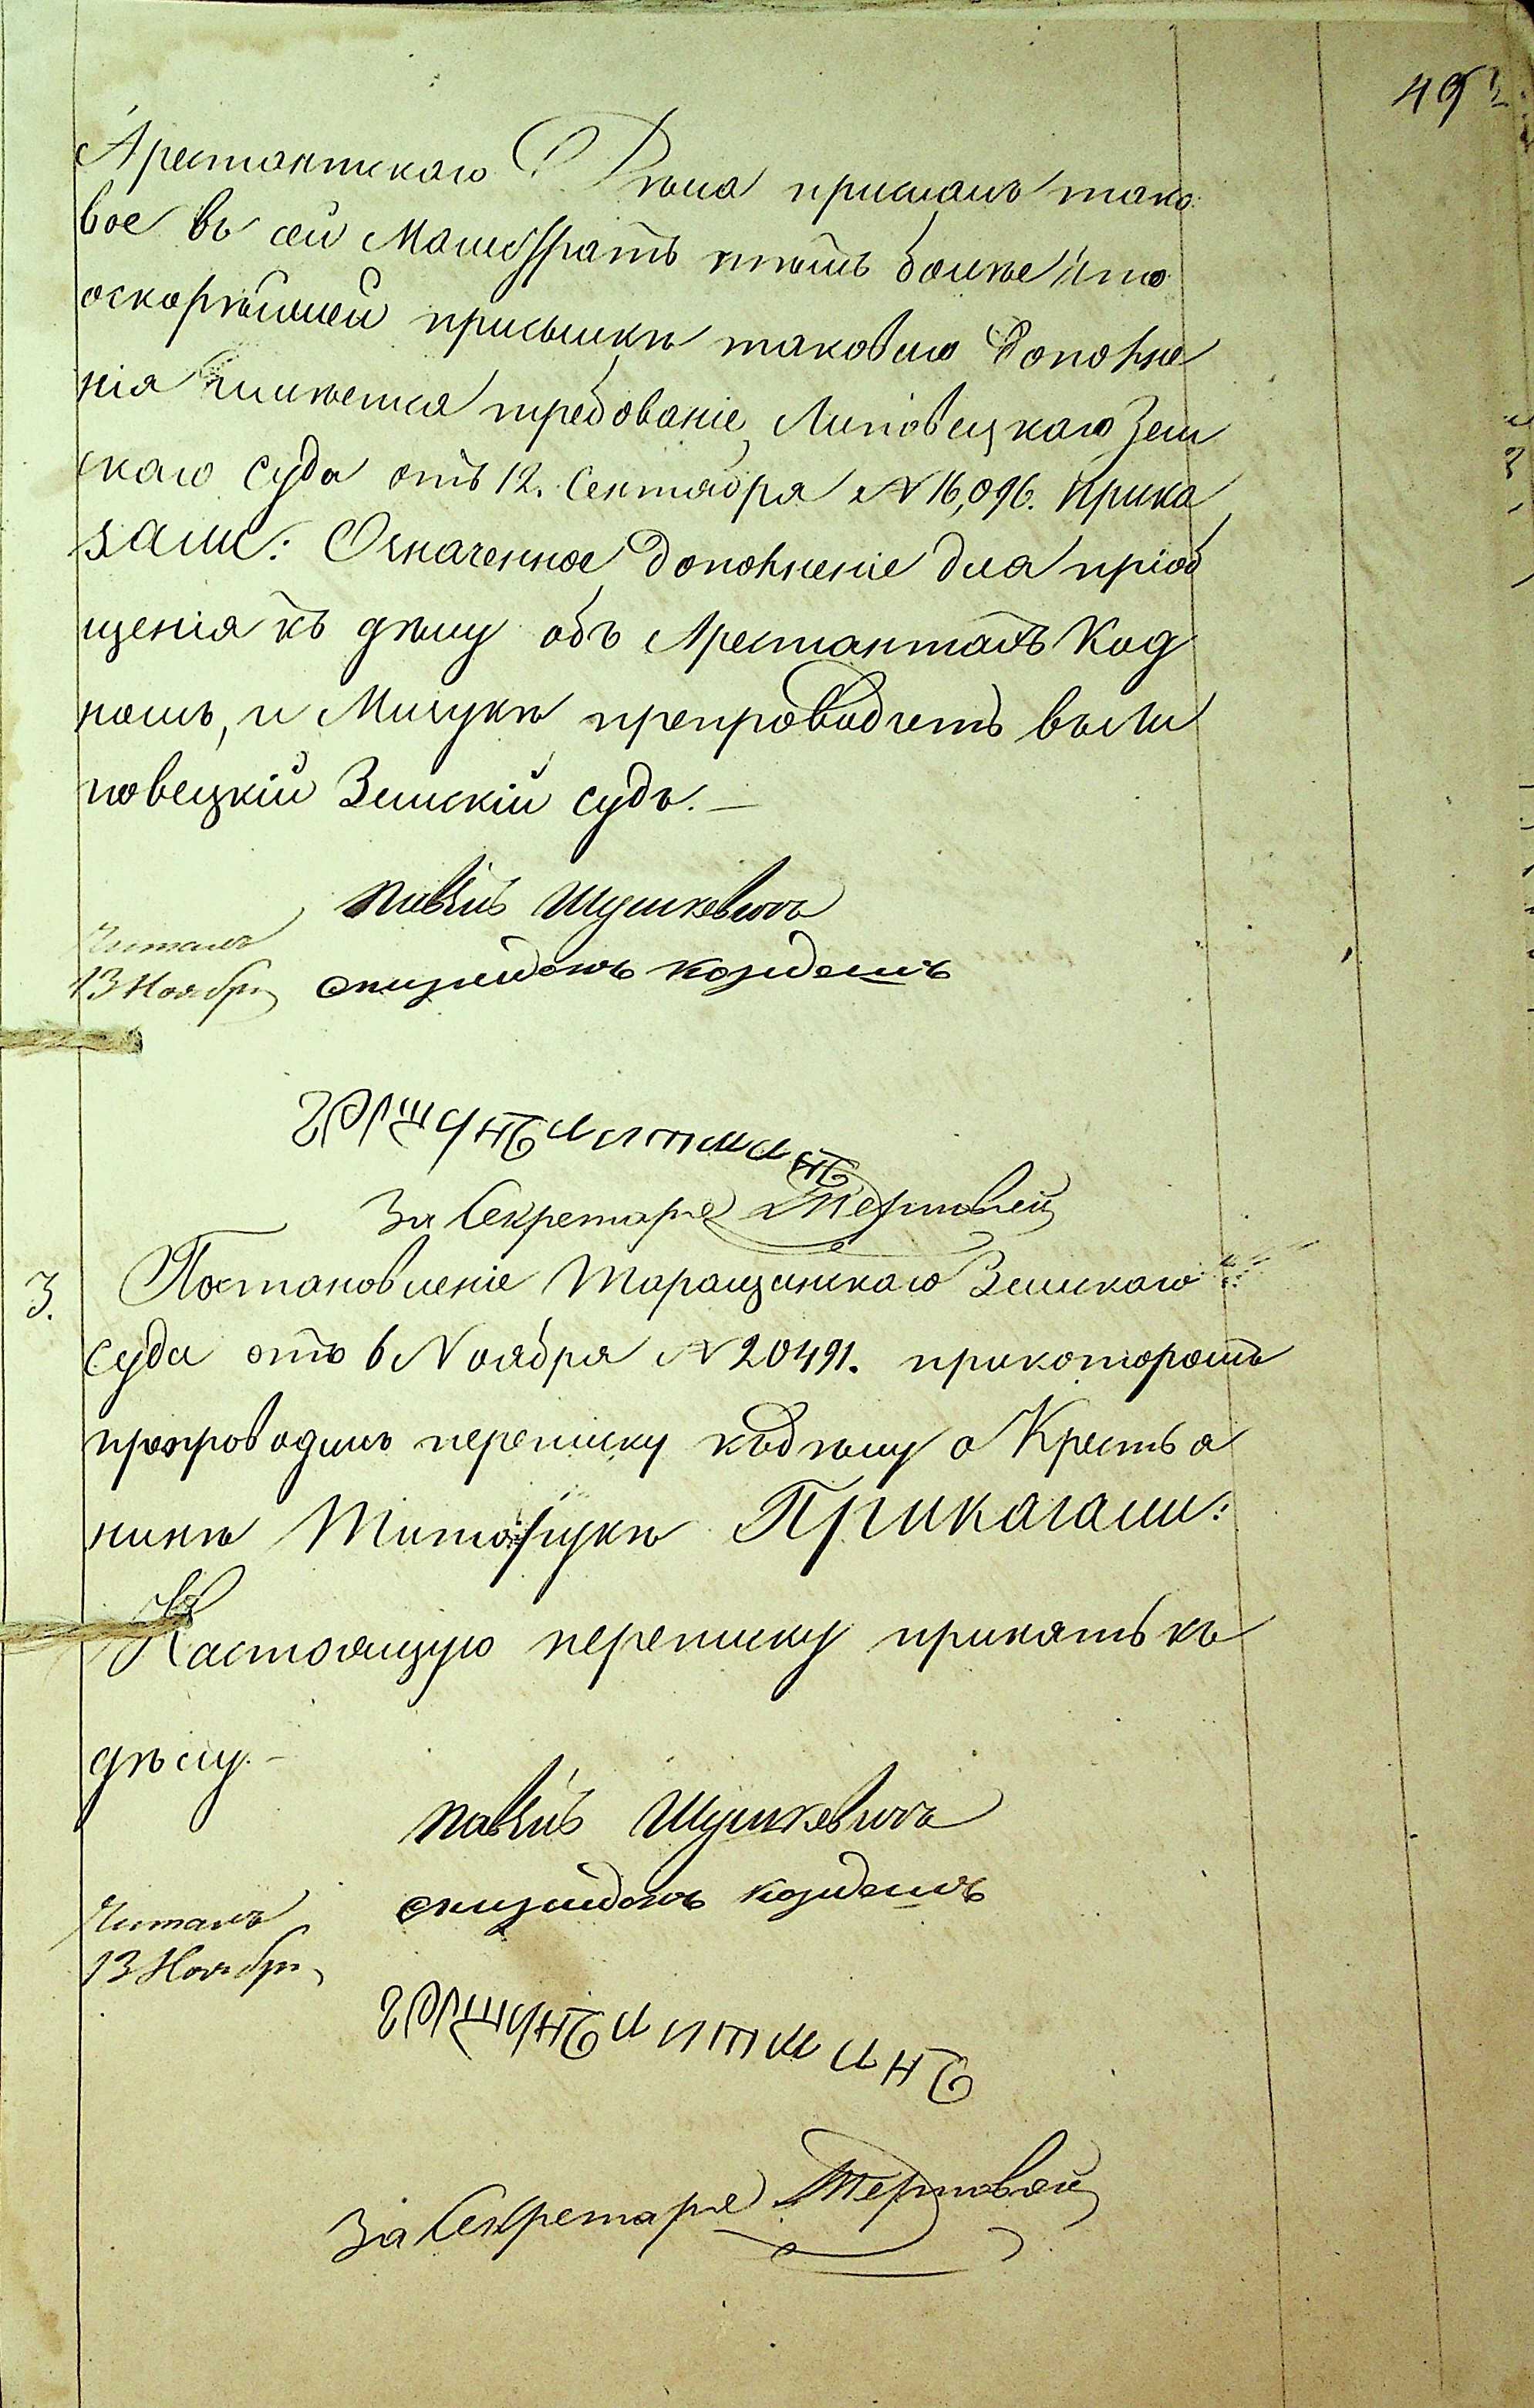 49
Арестантскаго Дѣла прислалъ тако
вое въ сей Магистратъ тѣмъ болѣе что
о скорѣйшей присылкѣ таковаго дополне
нія имѣется требованіе Липовецкаго Зем
скаго Суда отъ 12. Сентября № 16,096. Прика
зали: Означенное дополненіе для пріоб
щенія къ дѣлу объ Арестантахъ
и препроводить въ Ли
повецкій Земскій судъ. —
Павелъ Шушкевичъ
Читалъ
13 Ноября
За Секретаря
3.
Постановленіе Таращанскаго Земскаго
Суда отъ 6 Ноября № 20491. при которомъ
препроводилъ переписку къ дѣлу о Крестья
нинѣ Приказали:
Настоящую переписку принять къ
дѣлу. —
Павелъ Шушкевичъ
Читалъ
13 Ноября
За Секретаря